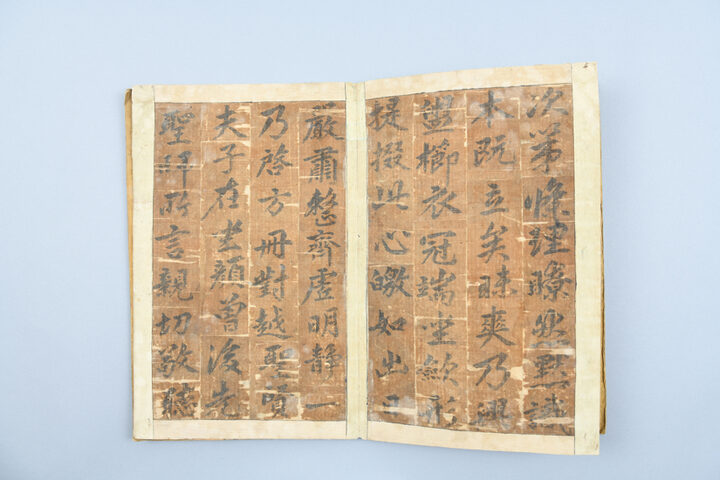 次第條理瞭然默識
本既立矣昧爽乃興
盥櫛衣冠端坐斂形
提掇此心皦如出日
嚴肅整齊虛明静一
乃啓方冊對越聖賢
夫子在坐顔曾後先
聖師所言親切敬聽